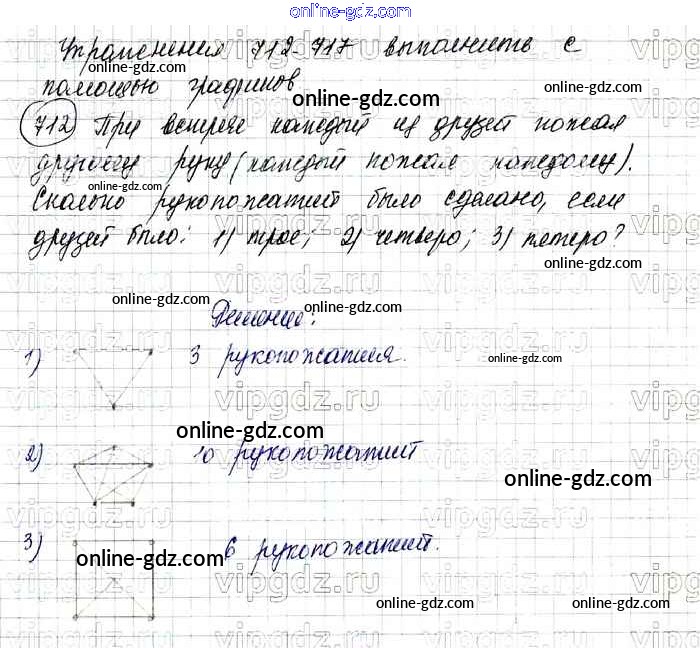 online-gdz.com
Упражнения 712-717 выполнить с
помощью графиков
712 При встрече каждый из друзей пожал
другому руку (каждый пожал каждому).
Сколько рукопожатий было сделано, если
друзей было: 1) трое; 2) четверо; 3) пятеро?
Решение:
1) 3 рукопожатия.
2) 10 рукопожатий
3) 6 рукопожатий.
online-gdz.com
online-gdz.com
online-gdz.com
online-gdz.com
online-gdz.com
online-gdz.com
online-gdz.com
online-gdz.com
online-gdz.com
online-gdz.com
online-gdz.com
online-gdz.com
online-gdz.com
online-gdz.com
vipgdz.ru
vipgdz.ru
vipgdz.ru
vipgdz.ru